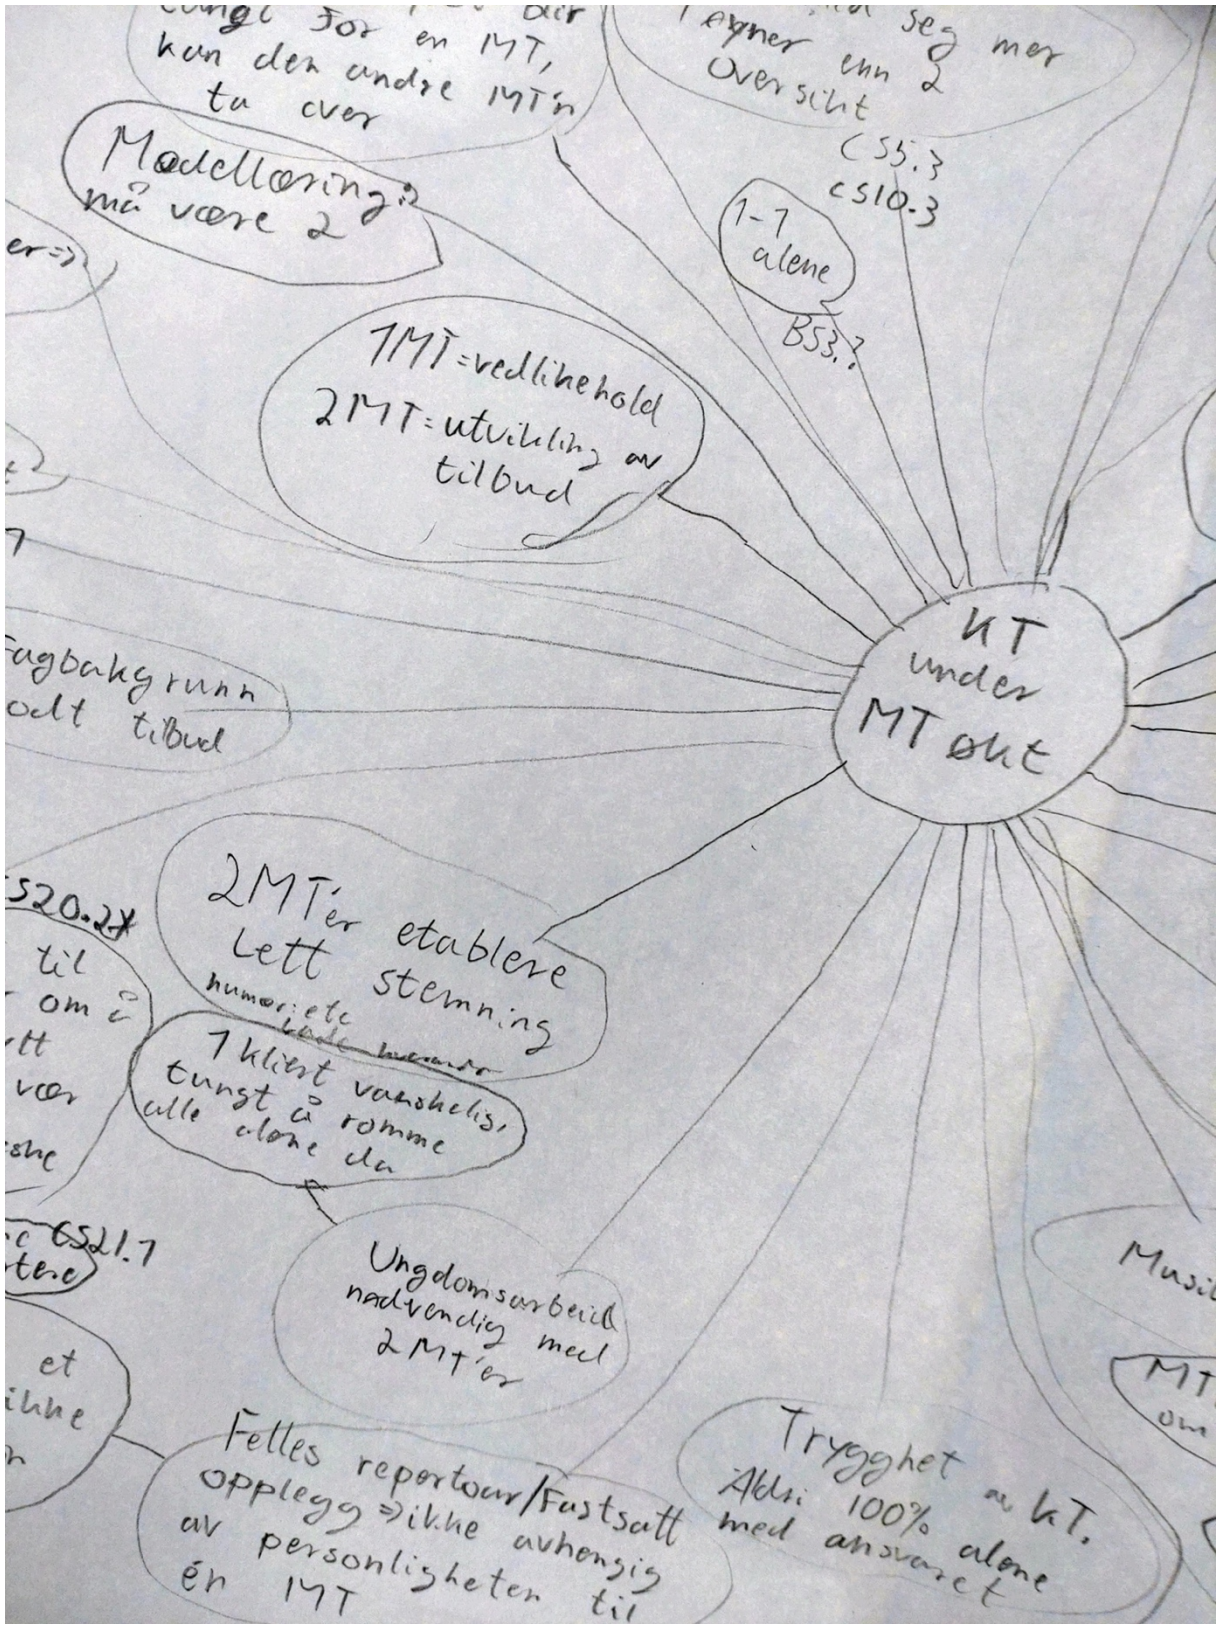 for en MT,
kan den andre MT'n
ta over
seg mer
enn 2
Oversikt
CS5.3
CS10.3
Modellæring:
må være 2
1-1
alene
BS3.?
er=>
1MT=vedlikehold
2MT=utvikling av
tilbud
KT
under
MT økt
Fagbakgrunn
odt tilbud
2MT'er etablere
Lett stemning
humor etc
1 klient vanskelig,
tungt å romme
alle alene da
S20.2
til
om å
tt
vær
CS21.1
Ungdomsarbeid
nødvendig med
2MT'er
et
ikke
Felles repertoar/Fastsatt
opplegg =>ikke avhengig
av personligheten til
én MT
Trygghet av KT.
Aldri 100% alene
med ansvaret
Musi
MT
om